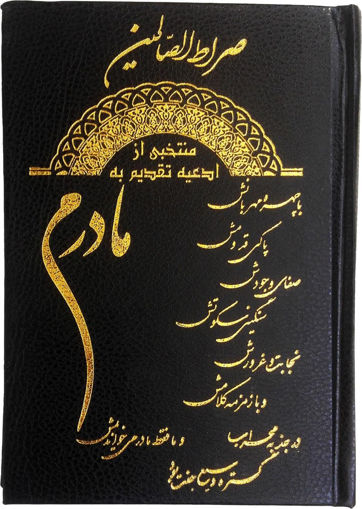 صراط الصّالحین
منتخبی از
ادعیه تقدیم به
مادرم
با چهره مهربانش
پاکی قدومش
صفای وجودش
سنگینی سکوتش
نجابت و غرورش
و با زمزمه کلامش
در جذبه محراب
و ما فقط مادر می خوانیمش
گستره وسیع جنت